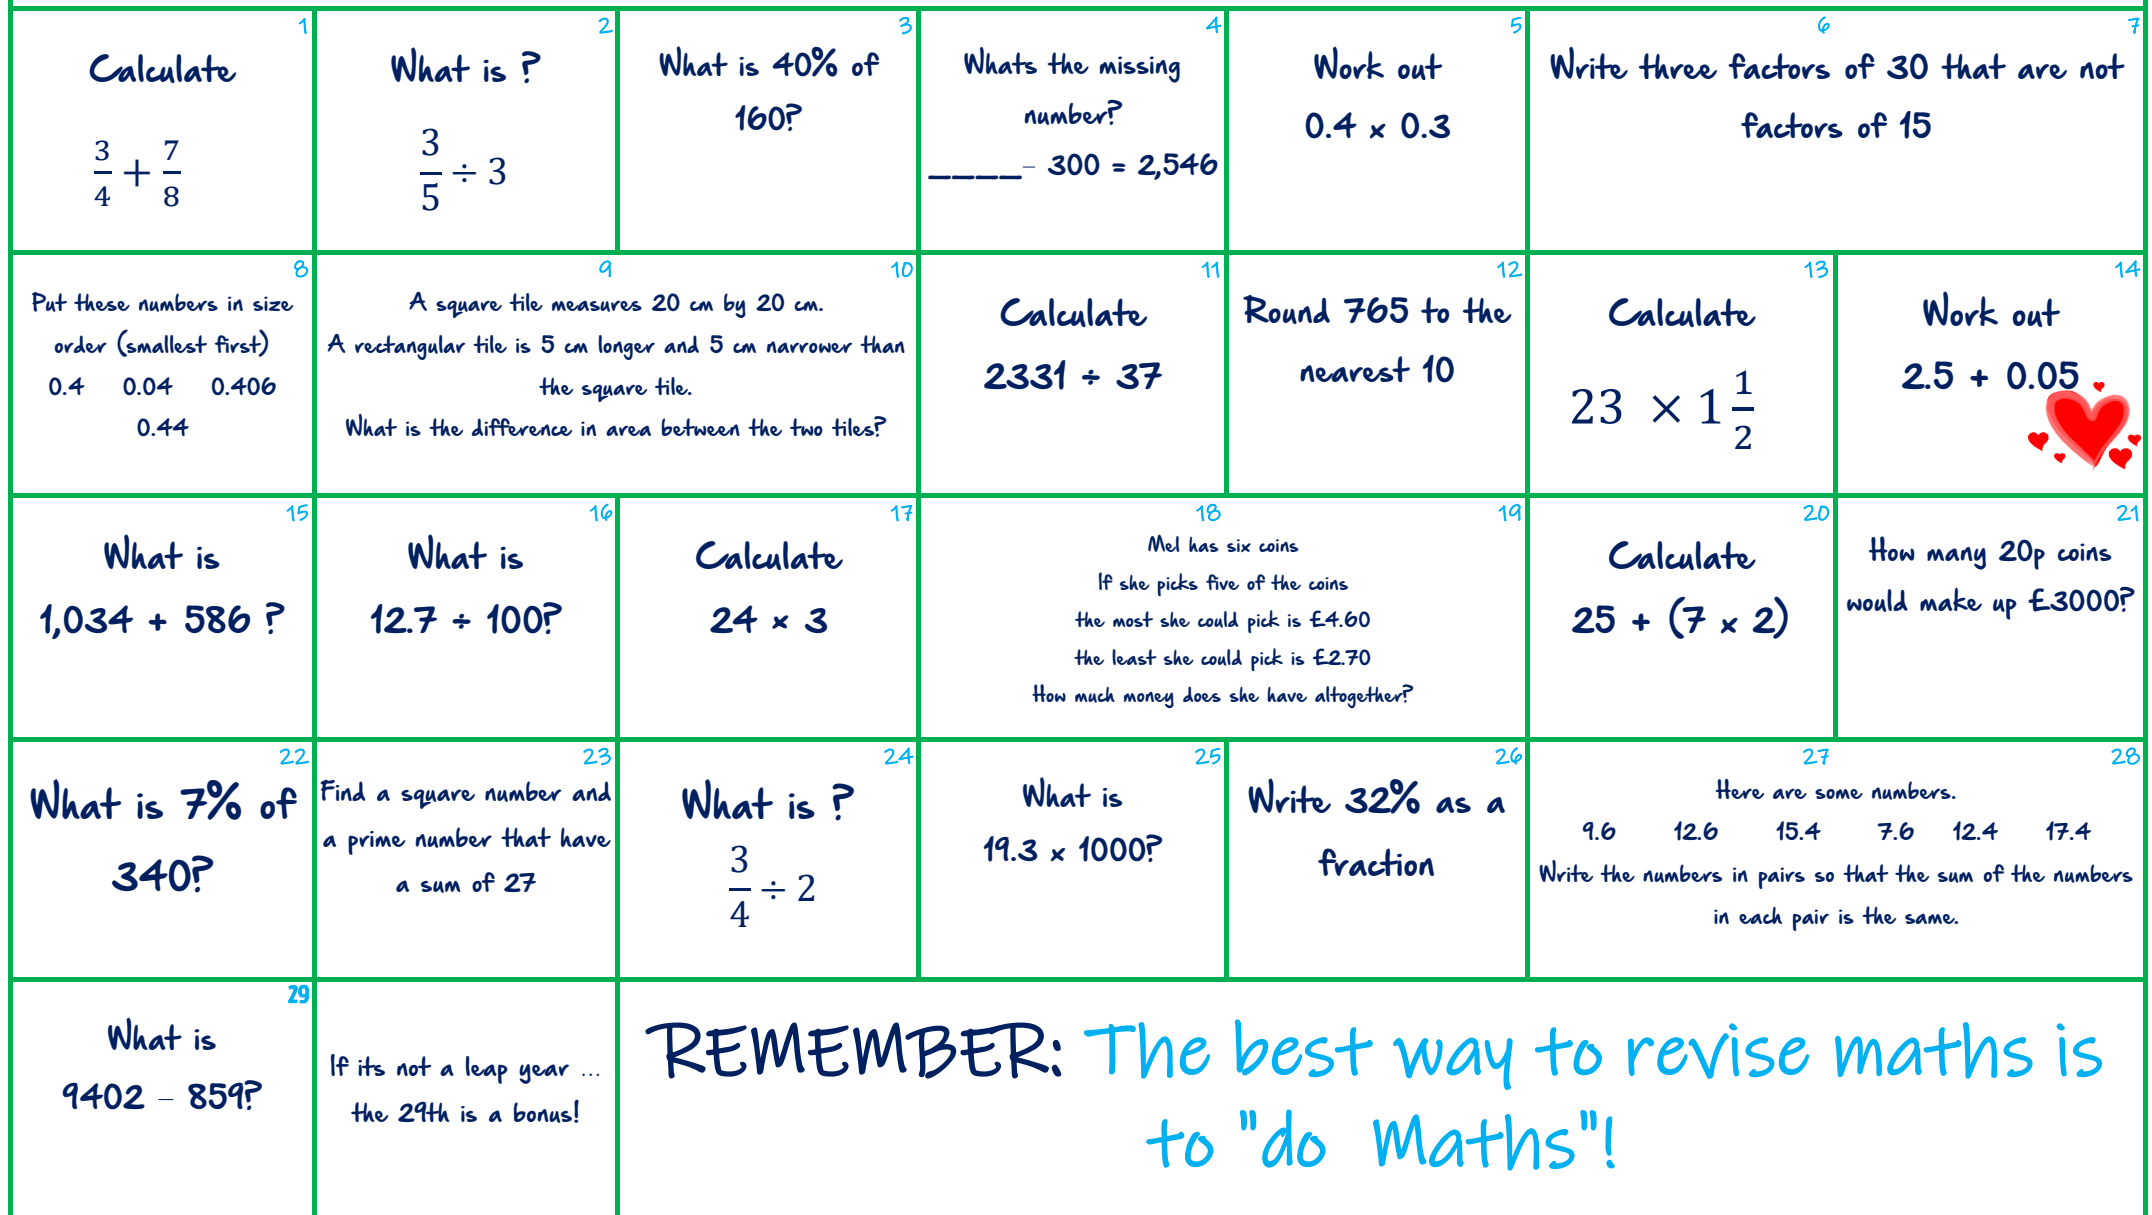 1
Calculate
3/4 + 7/8
2
What is ?
3/5 ÷ 3
3
What is 40% of
160?
4
Whats the missing
number?
____– 300 = 2,546
5
Work out
0.4 x 0.3
6 7
Write three factors of 30 that are not
factors of 15
8
Put these numbers in size
order (smallest first)
0.4 0.04 0.406
0.44
9 10
A square tile measures 20 cm by 20 cm.
A rectangular tile is 5 cm longer and 5 cm narrower than
the square tile.
What is the difference in area between the two tiles?
11
Calculate
2331 ÷ 37
12
Round 765 to the
nearest 10
13
Calculate
23 × 1 1/2
14
Work out
2.5 + 0.05
15
What is
1,034 + 586 ?
16
What is
12.7 ÷ 100?
17
Calculate
24 x 3
18 19
Mel has six coins
If she picks five of the coins
the most she could pick is £4.60
the least she could pick is £2.70
How much money does she have altogether?
20
Calculate
25 + (7 x 2)
21
How many 20p coins
would make up £3000?
22
What is 7% of
340?
23
Find a square number and
a prime number that have
a sum of 27
24
What is ?
3/4 ÷ 2
25
What is
19.3 x 1000?
26
Write 32% as a
fraction
27 28
Here are some numbers.
9.6 12.6 15.4 7.6 12.4 17.4
Write the numbers in pairs so that the sum of the numbers
in each pair is the same.
29
What is
9402 – 859?
If its not a leap year ...
the 29th is a bonus!
REMEMBER: The best way to revise maths is
to "do Maths"!